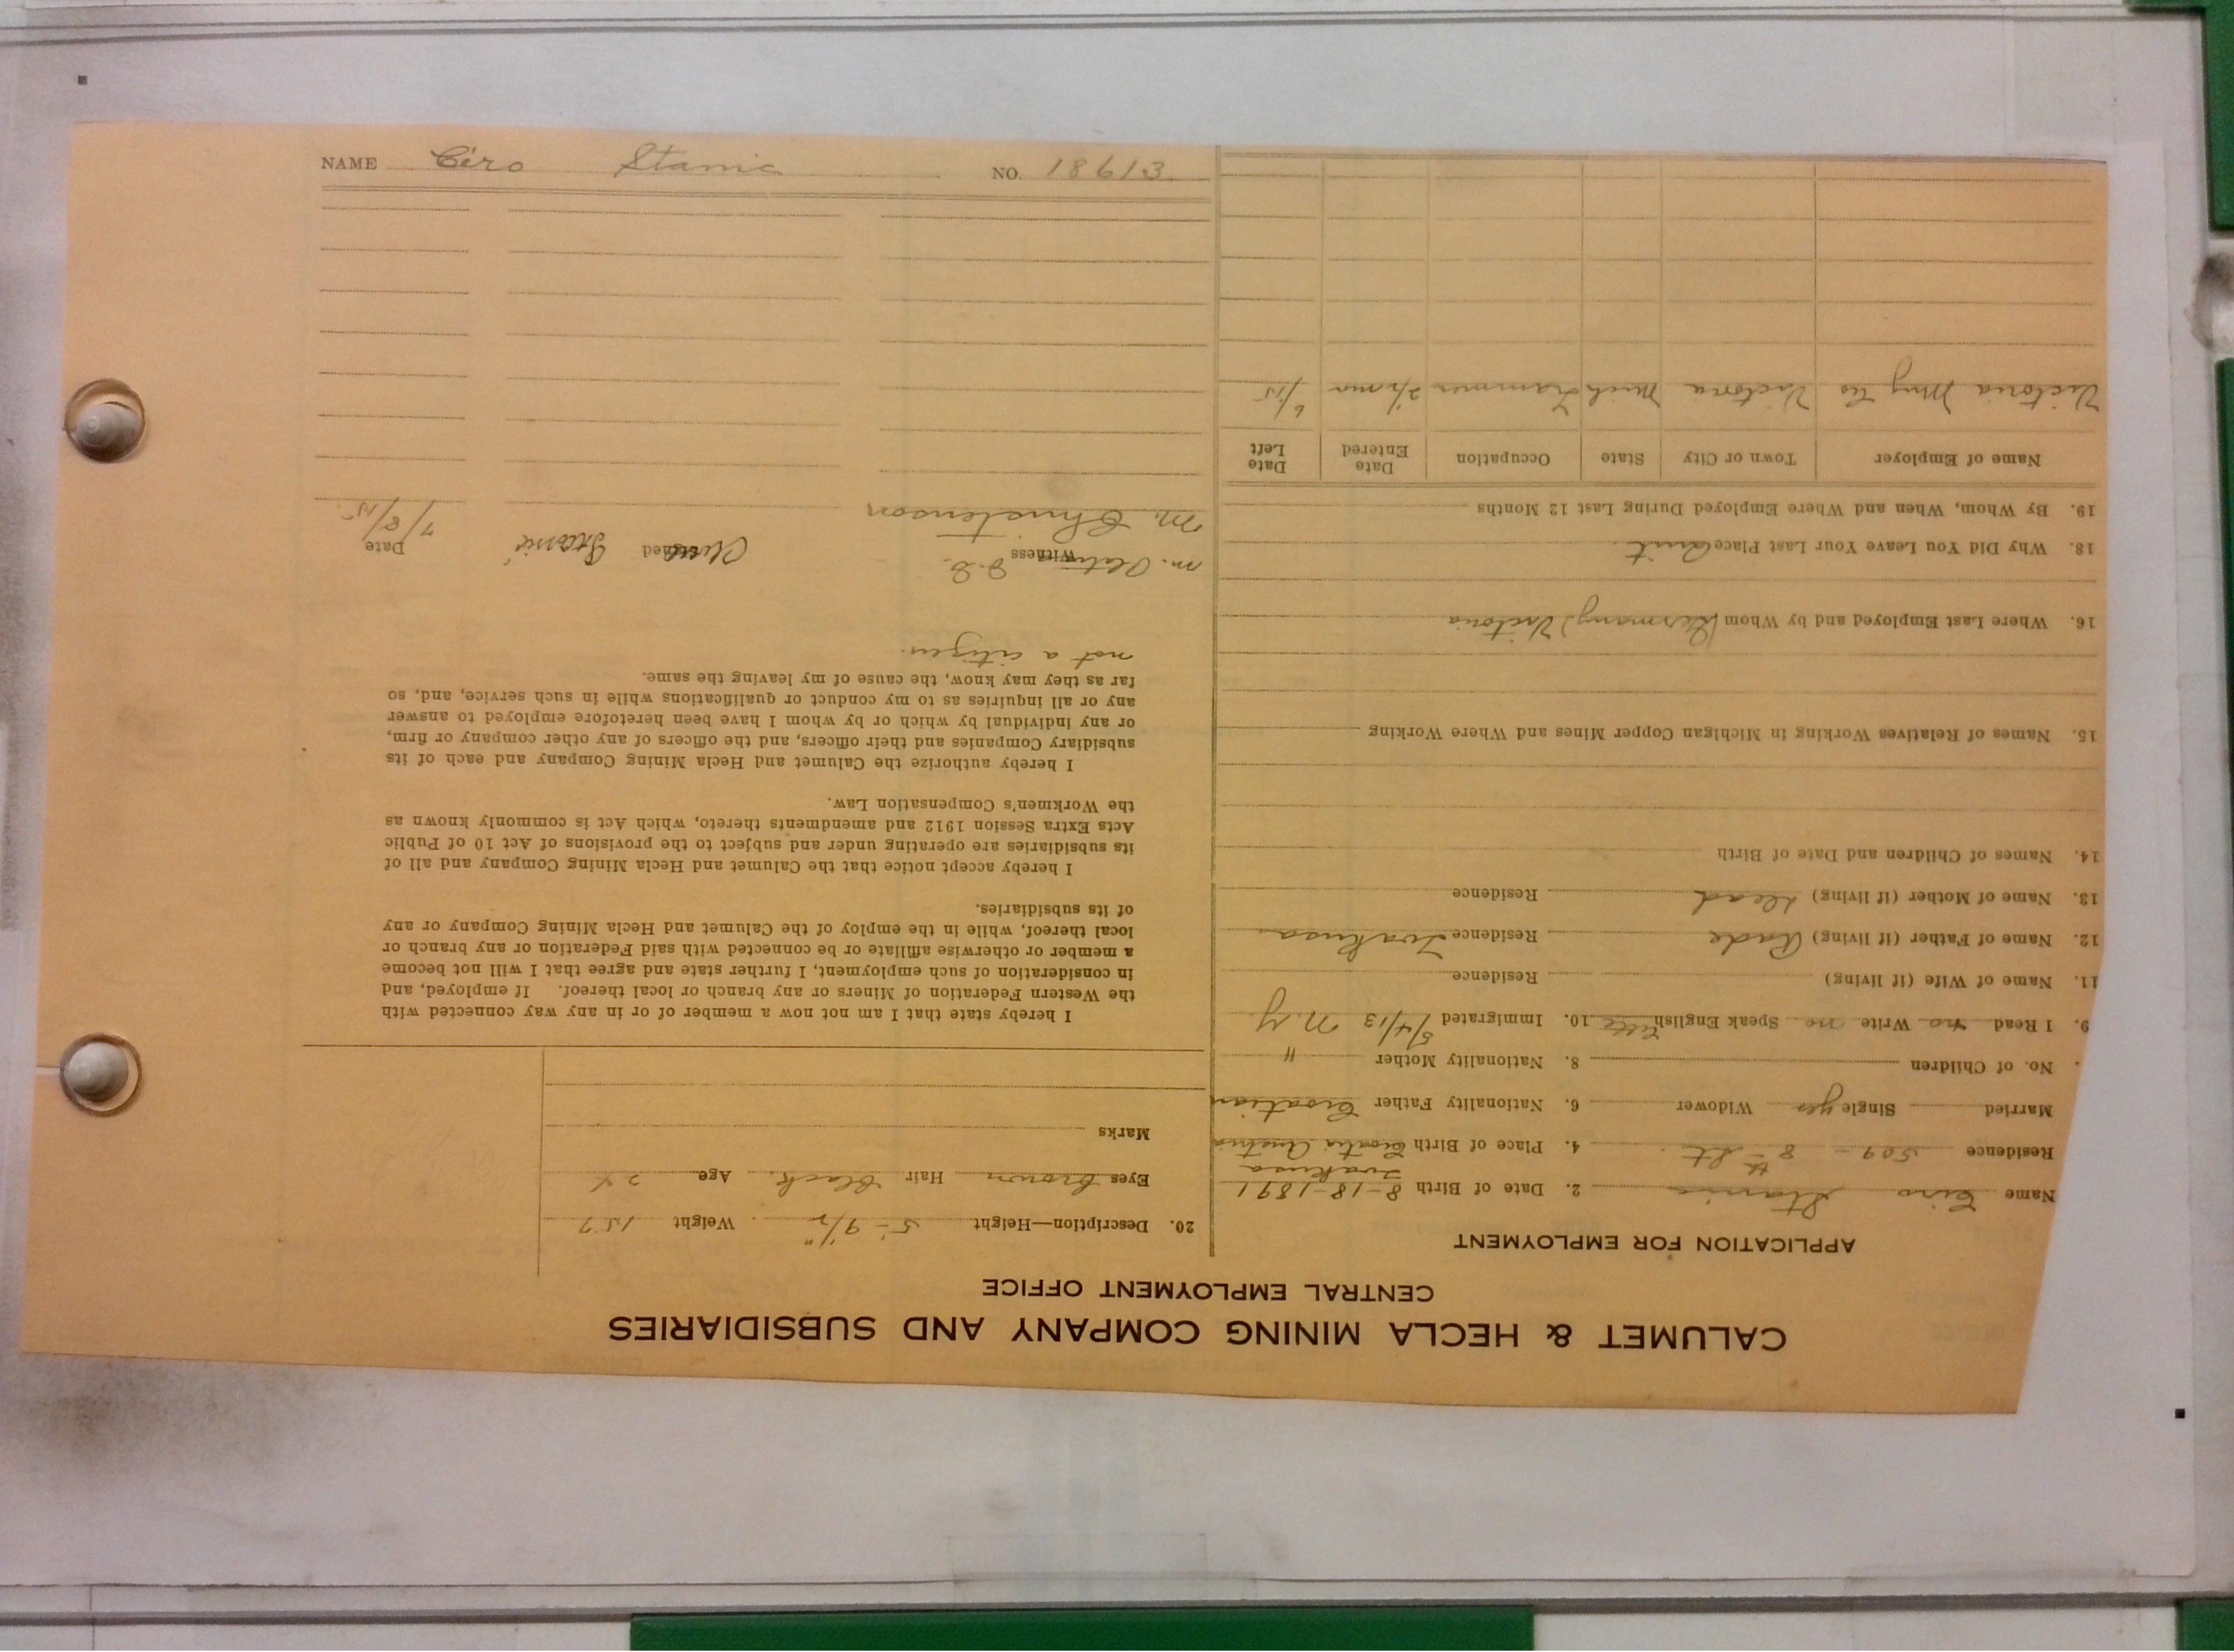 CALUMET & HECLA MINING COMPANY AND SUBSIDIARIES
CENTRAL EMPLOYMENT OFFICE
APPLICATION FOR EMPLOYMENT
Name Ciro Stanic 2. Date of Birth 8-18-1891
Residence 509 - 8th St. 4. Place of Birth Croatia Austria
Married Single yes Widower 6. Nationality Father Croatian
No. of Children 8. Nationality Mother "
9. I Read no Write no Speak English little 10. Immigrated 5/4/13 N.Y.
11. Name of Wife (if living) Residence
12. Name of Father (if living) Rade Residence
13. Name of Mother (if living) dead Residence
14. Names of Children and Date of Birth
15. Names of Relatives Working in Michigan Copper Mines and Where Working
16. Where Last Employed and by Whom (Germany) Victoria
18. Why Did You Leave Your Last Place Quit.
19. By Whom, When and Where Employed During Last 12 Months
Name of Employer Town or City State Occupation Date Entered Date Left
Victoria Mng Co Victoria Mich Trammer 2½ mos 6/15
20. Description—Height 5'-9½" Weight 157
Eyes brown Hair black. Age 24
Marks
I hereby state that I am not now a member of or in any way connected with
the Western Federation of Miners or any branch or local thereof. If employed, and
in consideration of such employment, I further state and agree that I will not become
a member or otherwise affiliate or be connected with said Federation or any branch or
local thereof, while in the employ of the Calumet and Hecla Mining Company or any
of its subsidiaries.
I hereby accept notice that the Calumet and Hecla Mining Company and all of
its subsidiaries are operating under and subject to the provisions of Act 10 of Public
Acts Extra Session 1912 and amendments thereto, which Act is commonly known as
the Workmen's Compensation Law.
I hereby authorize the Calumet and Hecla Mining Company and each of its
subsidiary Companies and their officers, and the officers of any other company or firm,
or any individual by which or by whom I have been heretofore employed to answer
any or all inquiries as to my conduct or qualifications while in such service, and, so
far as they may know, the cause of my leaving the same.
not a citizen.
Witness Signed Date
M. Christenson 7/8/15.
NAME Ciro Stanic NO. 18613